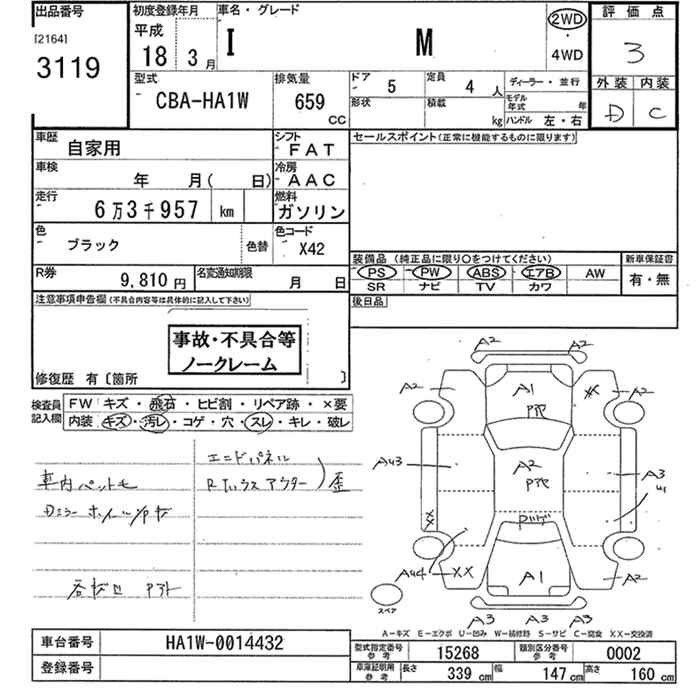 出品番号
[2164]
3119
初度登録年月
平成
18年 3月
車名・グレード
I M
2WD
4WD
評価点
3
外装 内装
D C
型式
CBA-HA1W
排気量
659
CC
ドア
5
定員
4 人
形状
積載
kg
ディーラー・並行
モデル年式 年
ハンドル 左・右
車歴
自家用
シフト
FAT
車検
年 月( 日)
冷房
AAC
走行
6万3千957 km
燃料
ガソリン
色
ブラック
色替
色コード
X42
R券
9,810 円
名変通知期限
月 日
セールスポイント(正常に機能するものに限ります)
装備品 (純正品に限り○をつけてください)
新車保証書
PS PW ABS エアB AW
SR ナビ TV カワ
有・無
後日品
注意事項申告欄(不具合内容等は具体的に記入して下さい)
事故・不具合等
ノークレーム
修復歴 有〔箇所 〕
検査員記入欄
FW キズ・飛石・ヒビ割・リペア跡・×要
内装 キズ・汚レ・コゲ・穴・スレ・キレ・破レ
エンドパネル
Rインナーハウス アウター
歪
車内ペット毛
Dミラー ホイール
A2 A2
A2 A1 XX A2
AU3 A2 A3
XX
AU4 XX A1 A2
A3 A3 A3
スペア
A-キズ E-エクボ U-凹み W-補修跡 S-サビ C-腐食 XX-交換済
車台番号
HA1W-0014432
登録番号
型式指定番号 参考
15268
類別区分番号 参考
0002
車庫証明用 参考
長さ 339 cm 幅 147 cm 高さ 160 cm